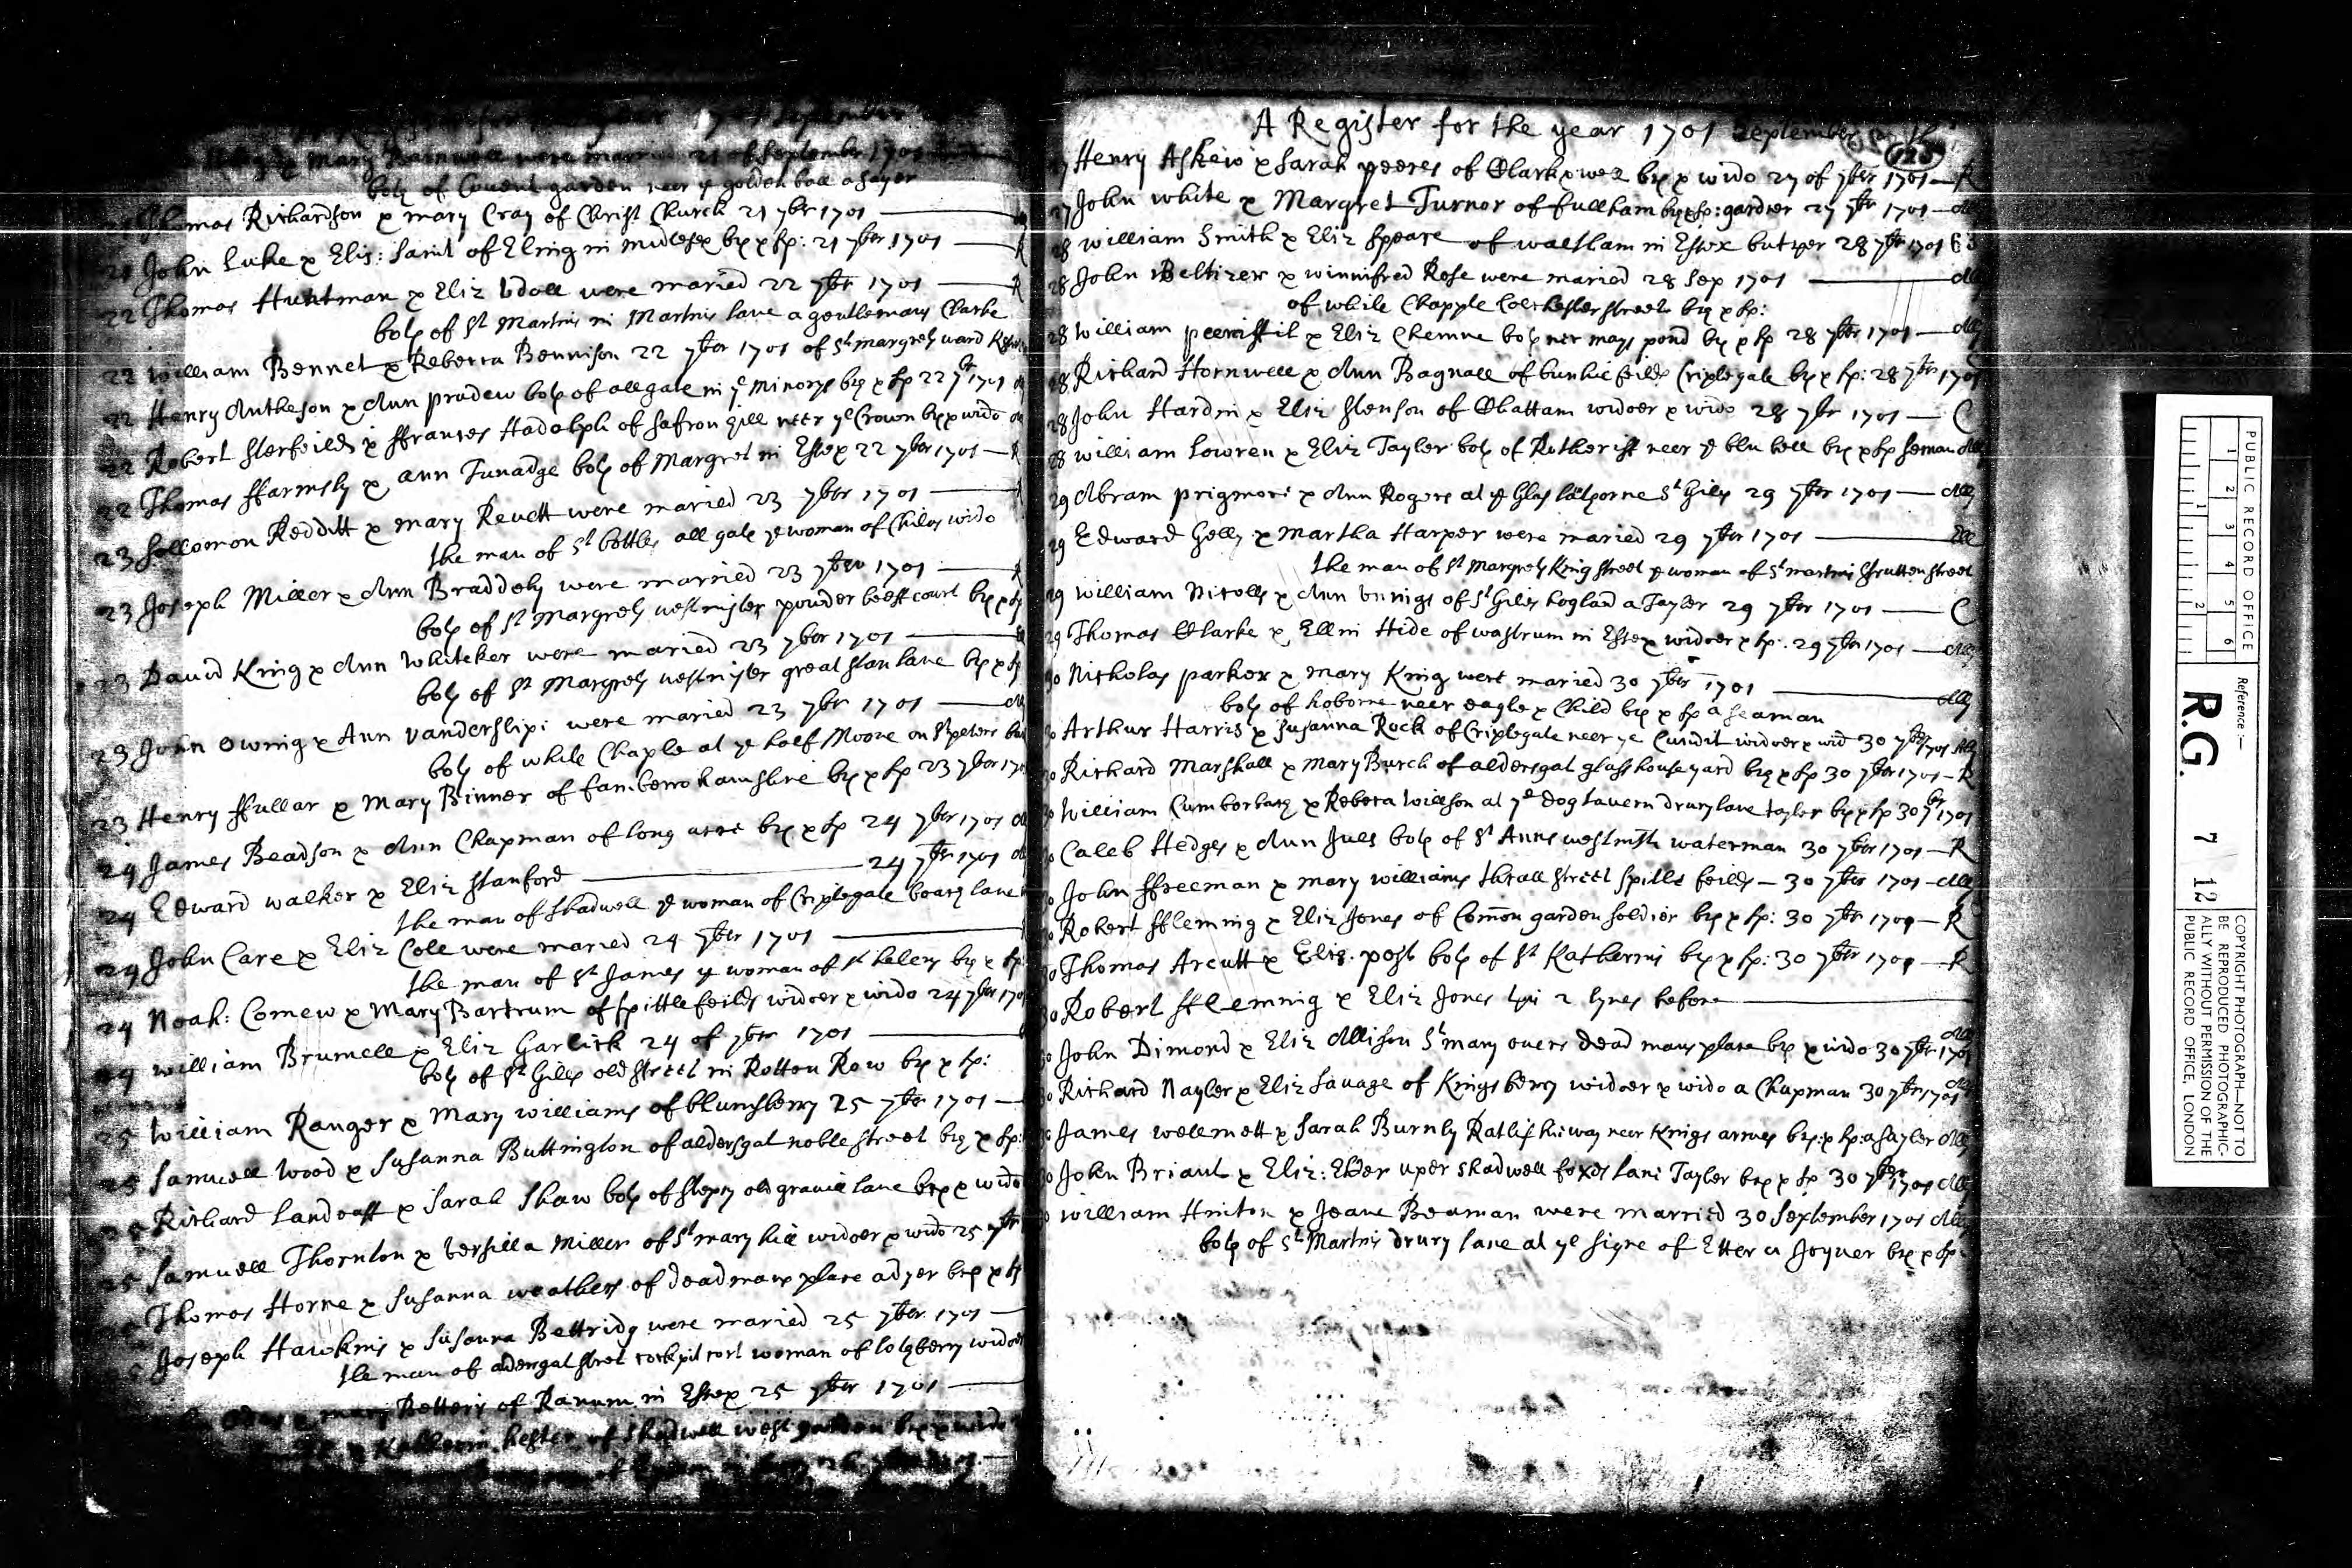 for the year 1701 September
Mary Barnwell were married 21 of September 1701
both of Covent garden neer ye golden ball a sayer
Thomas Richardson & mary Cray of Christ Church 21 7br 1701
21 John Luke & Elis: Saint of Eling in midlesex br & sp: 21 7ber 1701 R
22 Thomas Huntman & Eliz Udall were maried 22 7br 1701 R
both of St Martins in Martins lane a gentlemans Clarke
22 William Bennet & Rebecca Bennison 22 7ber 1701 of St margrets ward
22 Henry Antheson & Ann pradew both of allgate in ye minorys br & sp 22 7br 1701
22 Robert Sterfeilds & ffrances Hadolph of Safron hill neer ye Crown br & wido
22 Thomas ffarmsly & ann Tunadge both of Margret in Essex 22 7ber 1701 R
23 Sollomon Redditt & mary Revett were maried 23 7ber 1701
the man of St bottles allgate ye woman of Chiles wido
23 Joseph Miller & Ann Braddely were married 23 7ber 1701
both of St Margrets westmister powder beefe court br & sp
23 David King & Ann Whiteker were maried 23 7ber 1701
both of St Margrets westmister great stan lane br & sp
23 John Owing & Ann Vanderslipi were maried 23 7br 1701
both of white Chaple at ye half Moone on St peters
23 Henry ffullar & Mary Binner of farnberro hamshire br & sp 23 7ber 1701
24 James Beadson & Ann Chapman of long acre br & sp 24 7ber 1701
24 Edward walker & Eliz Stanford 24 7ber 1701
the man of Shadwell ye woman of Criplegate
24 John Care & Eliz Cole were maried 24 7ber 1701
the man of St James ye woman of St helens br & sp:
24 Noah: Comew & Mary Bartrum of spittlefeilds widoer & wido 24 7ber 1701
24 William Brumell & Eliz Garlick 24 of 7ber 1701
both of St Gilles old street in Rotton Row br & sp:
25 William Ranger & Mary williams of blumsberry 25 7br 1701
25 Samuell Wood & Susanna Buttington of aldersgat noble street br & sp:
25 Richard Landraft & Sarah Shaw both of stepny old gravile lane br & wido
25 Samuell Thornton & Versilla Miller of St mary hill widoer & wido 25 7br
Thomas Horne & Susanna weathers of deadmans place a dyer br & sp
Joseph Hawkins & Susanna Bettridg were maried 25 7ber 1701
the man of aldersgat street cockpit cort woman of lothberry widoer
mary Betteris of Ranum in Essex 25 7ber 1701
of Shadwell west garden br & wido
A Register for the year 1701 September
125
27 Henry Askew & Sarah peeres of Clarkenwell br & wido 27 of 7ber 1701 R
27 John White & Margret Turnor of fullham br & sp: gardner 27 7br 1701
28 William Smith & Eliz Speare of waltham in Essex butcher 28 7br 1701
28 John Beltizer & winnifred Rose were maried 28 Sep 1701
of white Chapple Colchester street br & sp:
28 William peenistil & Eliz Chemne both ner mays pond br & sp 28 7ber 1701
28 Richard Hornwell & Ann Bagnall of bunhill feilds Criplegate br & sp: 28 7br 1701
28 John Hardin & Eliz Stenson of Chattam widoer & wido 28 7br 1701 C
28 William Lowren & Eliz Tayler both of Rotherist neer ye blu bell br & sp seman
29 Abram prigmore & Ann Rogers at ye Glas St Giles 29 7ber 1701
29 Edward Gelly & Martha Harper were maried 29 7ber 1701
the man of St Margrets King street ye woman of St martins Strutten street
29 William Nicolls & Ann Ennigs of St Giles hogland a Tayler 29 7br 1701 C
29 Thomas Clarke & Ellin Hide of wastrum in Essex widoer & sp: 29 7br 1701
30 Nicholas parker & mary King were maried 30 7ber 1701
both of hoborne neer eagle & Child br & sp a seaman
30 Arthur Harris & Susanna Rock of Criplegate neer ye Cundit widoer & wid 30 7br 1701
30 Richard Marshall & Mary Burch of aldersgat glass house yard br & sp 30 7ber 1701 R
30 William Cumborbarg & Rebeca Willson at ye dog tavern drury lane tayler br & sp 30 7br 1701
30 Caleb Hedges & Ann Jues both of St Anns westmistr waterman 30 7ber 1701 R
30 John ffreeman & mary williams thrall street spittle feilds 30 7ber 1701
30 Robert ffleming & Eliz Jones of Comon garden soldier br & sp: 30 7br 1701 R
30 Thomas Arcutt & Elis. post both of St Katherins br & sp: 30 7ber 1701 R
30 Robert ffleming & Eliz Jones 2 lynes before
30 John Dimond & Eliz Allison St mary overs dead mans place br & wido 30 7br 1701
30 Richard Nayler & Eliz Savage of Kingsberry widoer & wido a Chapman 30 7br 1701
30 James wellmett & Sarah Burnly Ratlif hiway neer Kings armes br & sp: a sayler
30 John Briant & Eliz: Elder uper shadwell foxes lane Tayler br & sp 30 7br 1701
30 William Hinton & Jeane Beaman were married 30 September 1701
both of St Martins drury lane at ye signe of Etter a Joyner br & sp
PUBLIC RECORD OFFICE
1 2 3 4 5 6
1 2
Reference:—
R.G. 7 12
COPYRIGHT PHOTOGRAPH—NOT TO
BE REPRODUCED PHOTOGRAPHIC-
ALLY WITHOUT PERMISSION OF THE
PUBLIC RECORD OFFICE, LONDON